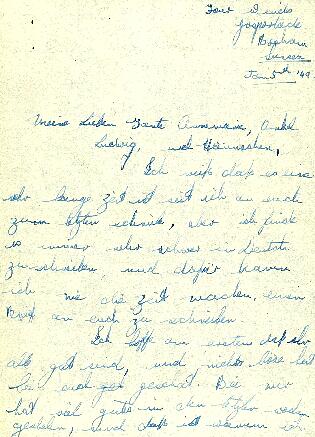 Four Winds
Bopham
Sussex
Jan 5th '49
Meine Lieben Tante Annemarie, Onkel
Ludwig, und
Ich weiß daß es eine
sehr lange Zeit ist seit ich an euch
zum letzten schrieb, aber ich finde
es immer sehr schwer in Deutsch
zu schreiben, und dafür kann
ich nie die Zeit machen, einen
Brief an euch zu schreiben.
Ich hoffe am ersten daß ihr
alle gut sind, und nichts böse hat
bei euch
hat viel gutes in den letzten
und daß ist warum ich